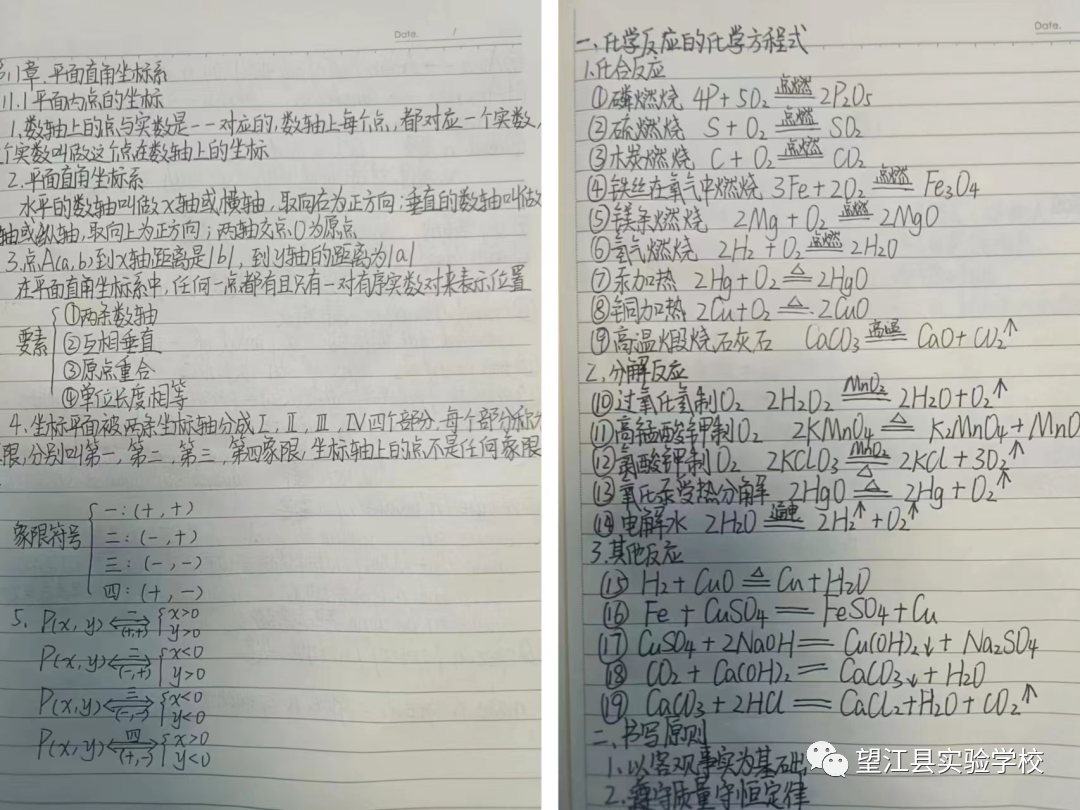 Date.
第11章.平面直角坐标系
11.1平面内点的坐标
1.数轴上的点与实数是一一对应的,数轴上每个点,都对应一个实数,
个实数叫做这个点在数轴上的坐标
2.平面直角坐标系
水平的数轴叫做x轴或横轴,取向右为正方向;垂直的数轴叫做
轴或纵轴,取向上为正方向;两轴交点O为原点
3.点A(a,b)到x轴距离是|b|,到y轴的距离为|a|
在平面直角坐标系中,任何一点都有且只有一对有序实数对来表示位置
要素
①两条数轴
②互相垂直
③原点重合
④单位长度相等
4.坐标平面被两条坐标轴分成Ⅰ,Ⅱ,Ⅲ,Ⅳ四个部分,每个部分称为
限,分别叫第一,第二,第三,第四象限,坐标轴上的点不是任何象限
象限符号
一:(+,+)
二:(-,+)
三:(-,-)
四:(+,-)
5. P(x,y) ⟺ 一 (+,+) {x>0 y>0
P(x,y) ⟺ 二 (-,+) {x<0 y>0
P(x,y) ⟺ 三 (-,-) {x<0 y<0
P(x,y) ⟺ 四 (+,-) {x>0 y<0
Date.
一、化学反应的化学方程式
1.化合反应
①磷燃烧 4P+5O₂ =点燃= 2P₂O₅
②硫燃烧 S+O₂ =点燃= SO₂
③木炭燃烧 C+O₂ =点燃= CO₂
④铁丝在氧气中燃烧 3Fe+2O₂ =点燃= Fe₃O₄
⑤镁条燃烧 2Mg+O₂ =点燃= 2MgO
⑥氢气燃烧 2H₂+O₂ =点燃= 2H₂O
⑦汞加热 2Hg+O₂ =△= 2HgO
⑧铜加热 2Cu+O₂ =△= 2CuO
⑨高温煅烧石灰石 CaCO₃ =高温= CaO+CO₂↑
2.分解反应
⑩过氧化氢制O₂ 2H₂O₂ =MnO₂= 2H₂O+O₂↑
⑪高锰酸钾制O₂ 2KMnO₄ =△= K₂MnO₄+MnO
⑫氯酸钾制O₂ 2KClO₃ =MnO₂ △= 2KCl+3O₂↑
⑬氧化汞受热分解 2HgO =△= 2Hg+O₂↑
⑭电解水 2H₂O =通电= 2H₂↑+O₂↑
3.其他反应
⑮ H₂+CuO =△= Cu+H₂O
⑯ Fe+CuSO₄ == FeSO₄+Cu
⑰ CuSO₄+2NaOH == Cu(OH)₂↓+Na₂SO₄
⑱ CO₂+Ca(OH)₂ == CaCO₃↓+H₂O
⑲ CaCO₃+2HCl == CaCl₂+H₂O+CO₂↑
二、书写原则
1.以客观事实为基础,
2.遵守质量守恒定律
望江县实验学校